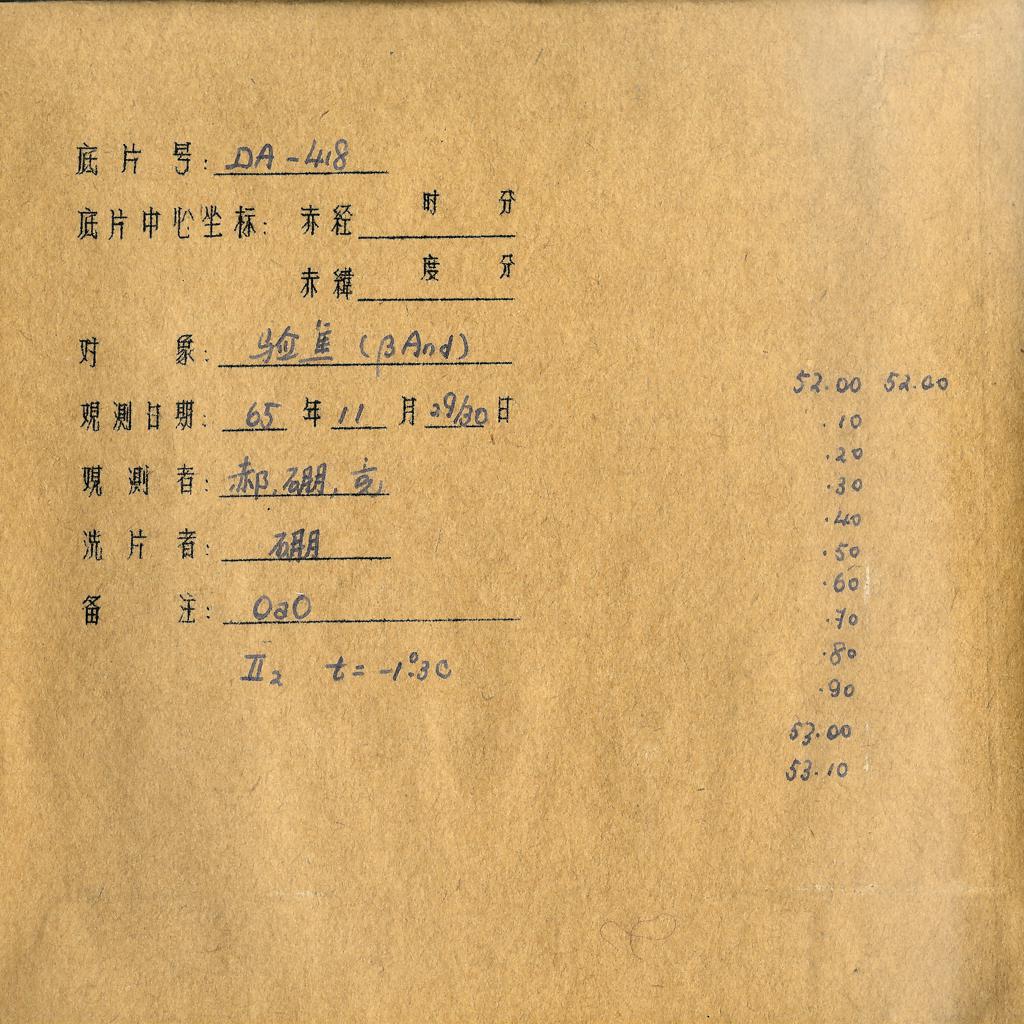 底片号: DA-418
底片中心坐标: 赤经 时 分
赤纬 度 分
对 象: 验焦 (βAnd)
观测日期: 65 年 11 月 29/30 日
观测者: 郝,硼,亮
洗片者: 硼
备 注: OaO
II₂ t=-1°.3C
52.00 52.00
.10
.20
.30
.40
.50
.60
.70
.80
.90
53.00
53.10